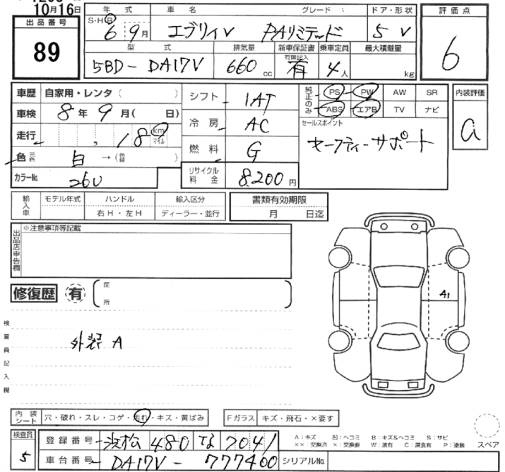 10月16日
出品番号
89
年式
S・H・R
6年9月
車名
エブリィV
グレード
PAリミテッド
ドア・形状
5 V
評価点
6
型式
5BD-DA17V
排気量
660cc
新車保証書
有
乗車定員
4人
最大積載量
kg
車歴 自家用・レンタ( )
車検 8年9月( 日)
走行 18 km マイル
色 元色 白→(
カラーNo. 26U
シフト IAT
冷房 AC
燃料 G
リサイクル料金 8,200円
純正のみ
PS PW AW SR
ABS エアB TV ナビ
セールスポイント
セーフティーサポート
内装評価
a
輸入車
モデル年式
ハンドル
右H・左H
輸入区分
ディーラー・並行
書類有効期限
月 日迄
出品店申告欄
※注意事項等記載
修復歴 有
箇所
検査員記入欄
外装 A
A1
内装シート
穴・破れ・スレ・コゲ・汚れ・キズ・黄ばみ
Fガラス キズ・飛石・×要す
検査員
5
登録番号 浜松 480 な 7041
車台番号 DA17V-777400
シリアルNo.
A:キズ B:ヘコミ
スペア